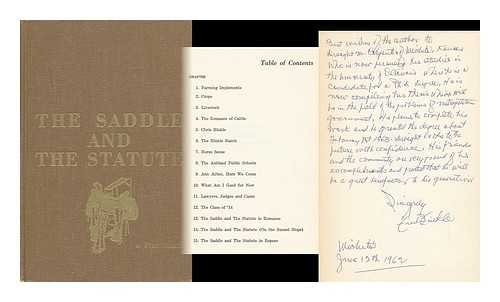 THE SADDLE
AND
THE STATUTE
Table of Contents
CHAPTER
1. Farming Implements
2. Crops
3. Livestock
4. The Romance of Cattle
5. Chris Hinkle
6. The Hinkle Ranch
7. Horse Sense
8. The Ashland Public Schools
9. Ann Arbor, Here We Come
10. What Am I Good for Now
11. Lawyers, Judges and Cases
12. The Class of '14
13. The Saddle and The Statute in Romance
14. The Saddle and The Statute (On the Sunset Slope)
15. The Saddle and The Statute in Repose
Best wishes of the author to
of Kansas
who is now pursuing his studies in
the University of where he is a
candidate for a Ph.D. degree. He is
now completing his thesis which will
be in the field of the problems of
government. He plans to complete his
work and be granted the degree about
looks to the
future with confidence. His friends
and the community are very proud of his
accomplishments and that he will
be a great to his generation
Sincerely
June 13th 1962